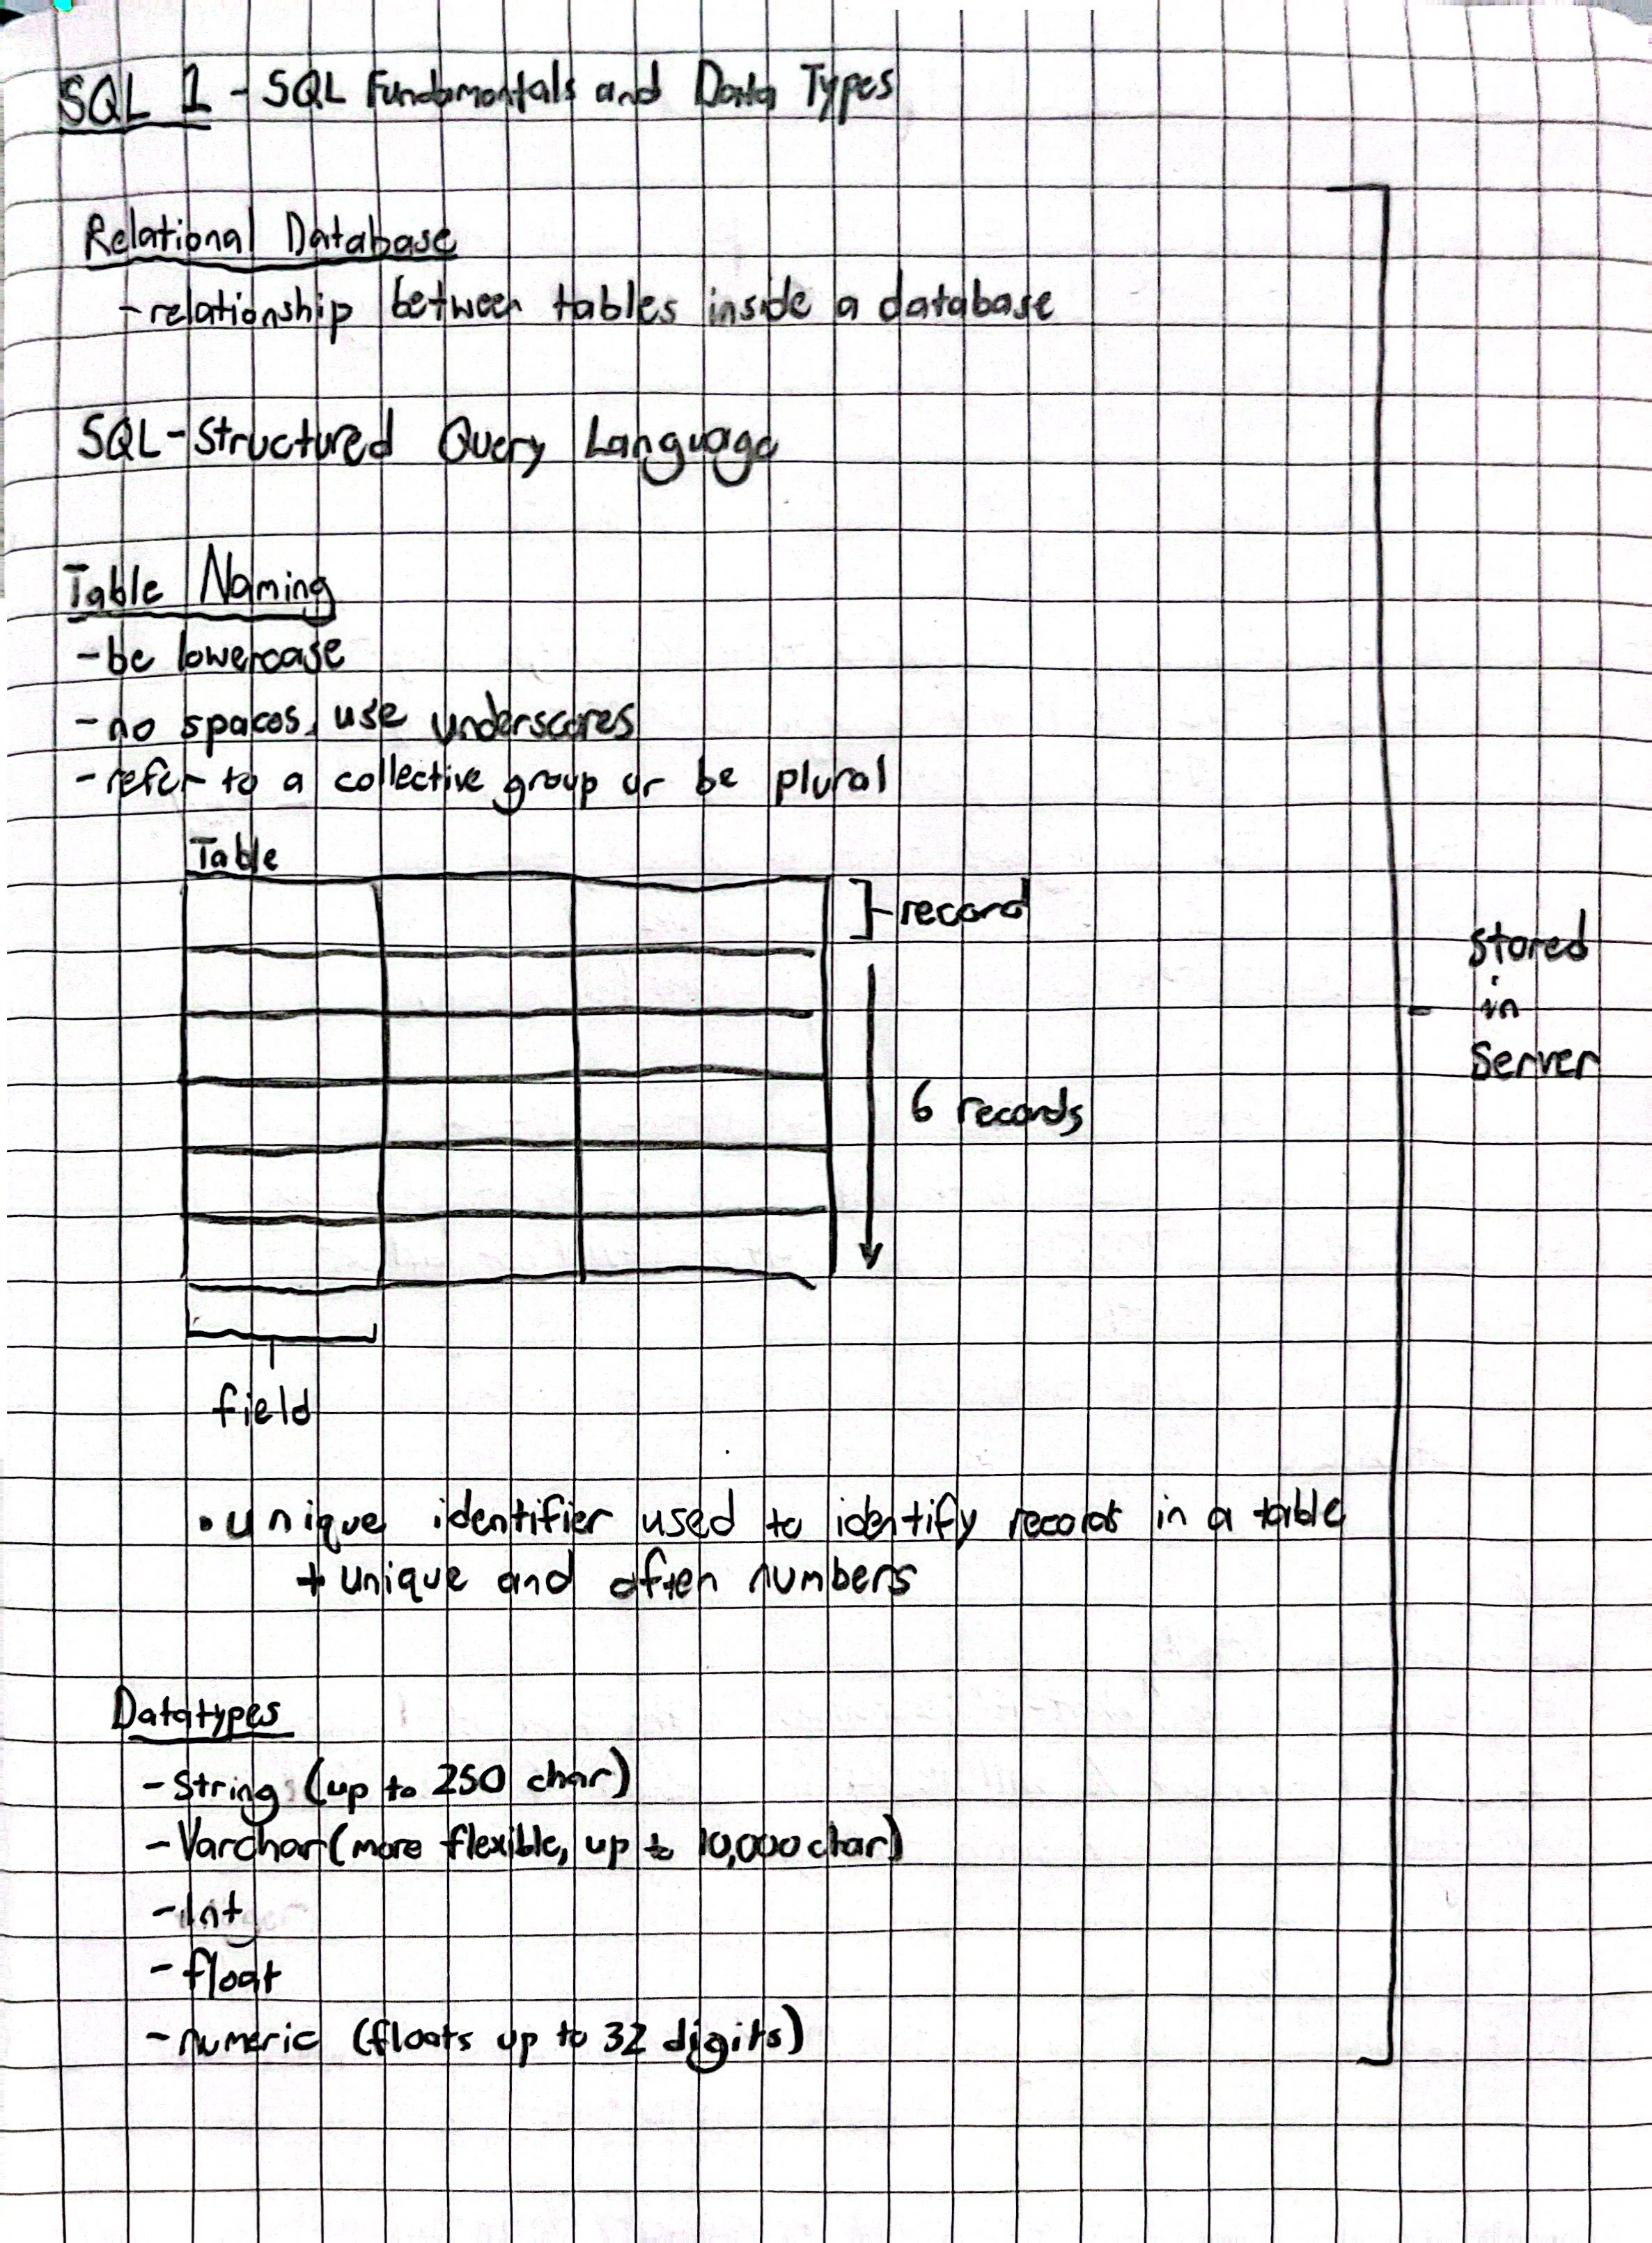 SQL 1 - SQL Fundamentals and Data Types
Relational Database
- relationship between tables inside a database
SQL - Structured Query Language
Table Naming
- be lowercase
- no spaces, use underscores
- refer to a collective group or be plural
Table
record
6 records
field
stored
in
Server
• unique identifier used to identify records in a table
+ unique and often numbers
Datatypes
- String (up to 250 char)
- Varchar (more flexible, up to 10,000 char)
- Int
- float
- numeric (floats up to 32 digits)